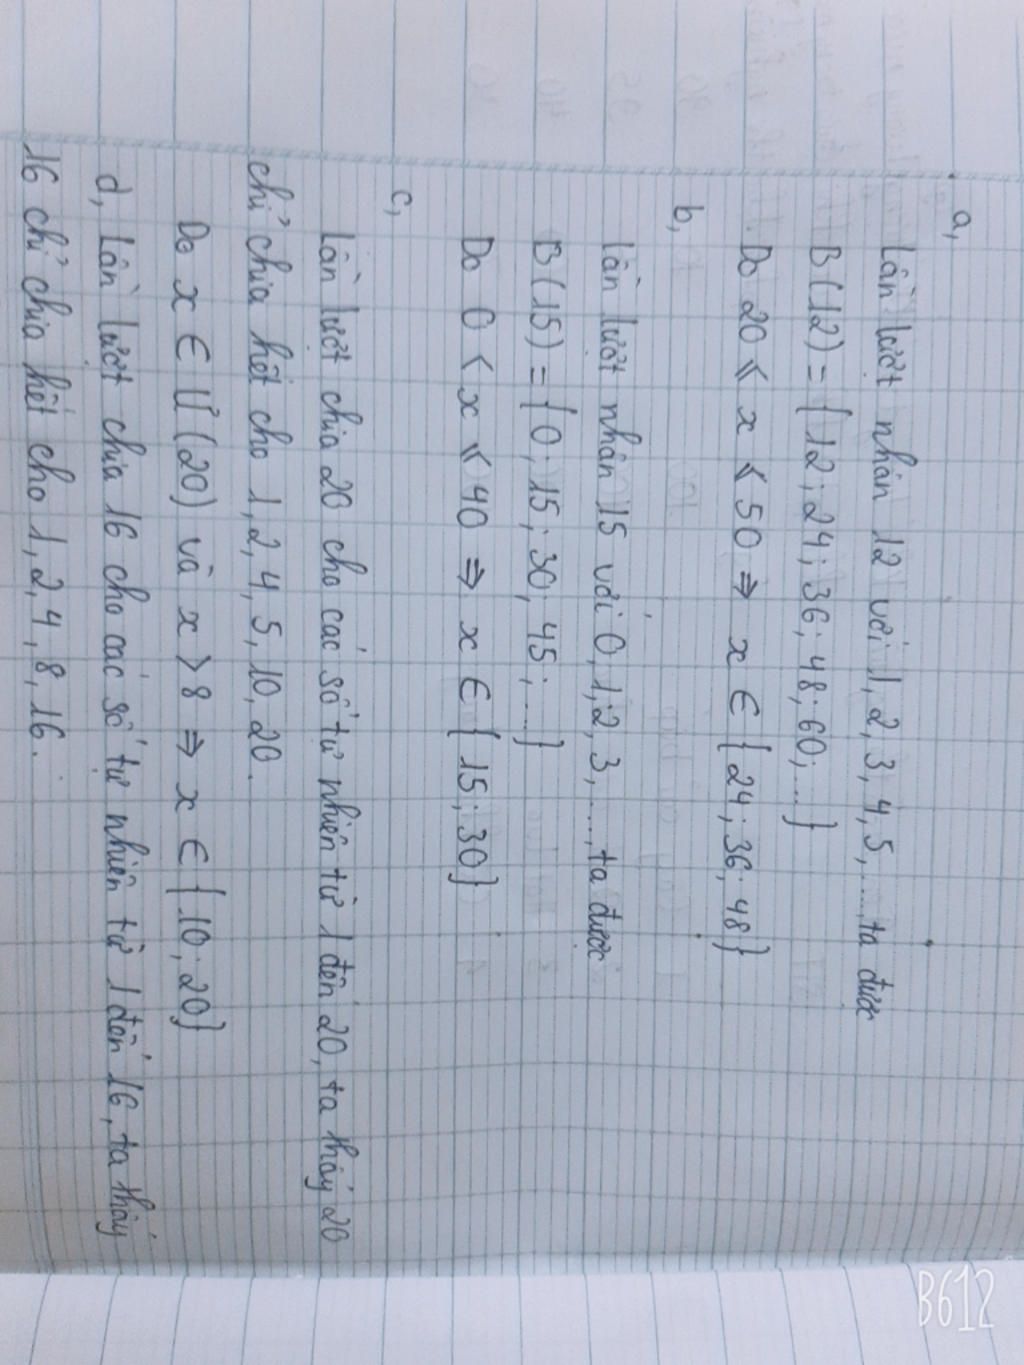 a,
Lần lượt nhân 12 với 1, 2, 3, 4, 5, ... ta được
B(12) = {12; 24; 36; 48; 60; ...}
Do 20 ≤ x ≤ 50 ⇒ x ∈ {24; 36; 48}
b,
Lần lượt nhân 15 với 0, 1, 2, 3, ..., ta được
B(15) = {0; 15; 30; 45; ...}
Do 0 < x ≤ 40 ⇒ x ∈ {15; 30}
c,
Lần lượt chia 20 cho các số tự nhiên từ 1 đến 20, ta thấy 20
chỉ chia hết cho 1, 2, 4, 5, 10, 20.
Do x ∈ Ư(20) và x > 8 ⇒ x ∈ {10; 20}
d, Lần lượt chia 16 cho các số tự nhiên từ 1 đến 16, ta thấy
16 chỉ chia hết cho 1, 2, 4, 8, 16.
B612